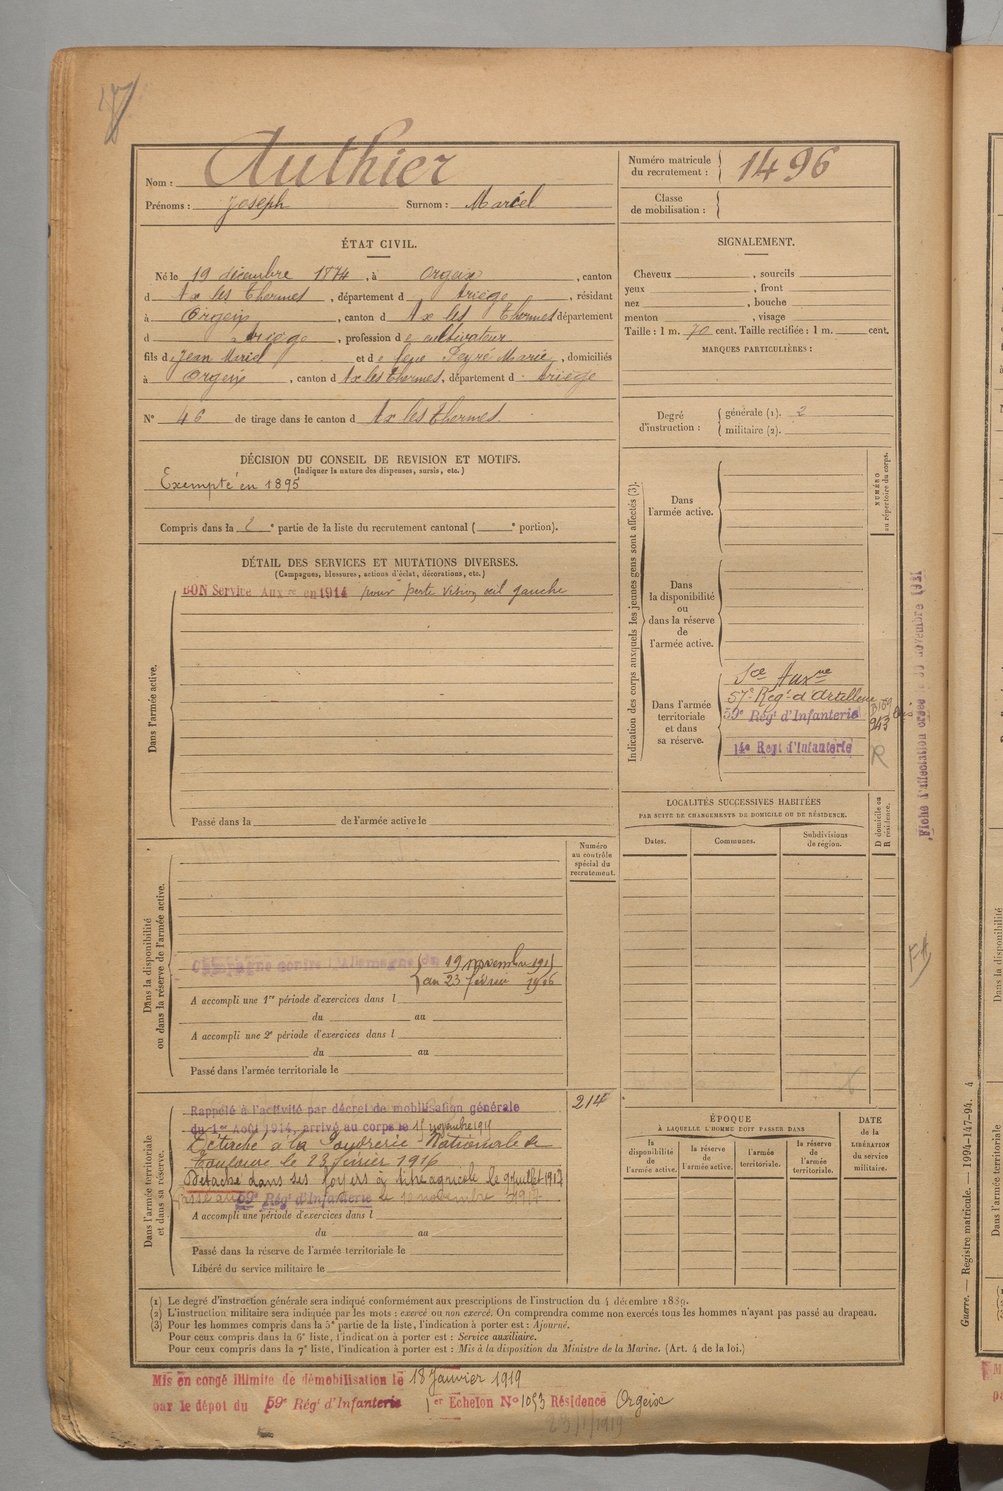 Nom : Authier
Prénoms : Joseph Surnom : Marcel
Numéro matricule du recrutement : 1496
Classe de mobilisation :
ÉTAT CIVIL.
Né le 19 décembre 1874, à Orgeix, canton
d Ax les Thermes, département d Ariège, résidant
à Orgeix, canton d Ax les Thermes département
d Ariège, profession de cultivateur
fils de Jean Marcel et de feue Peyré Marie, domiciliés
à Orgeix, canton d Ax les Thermes, département d Ariège
N° 46 de tirage dans le canton d Ax les Thermes.
DÉCISION DU CONSEIL DE REVISION ET MOTIFS.
(Indiquer la nature des dispenses, sursis, etc.)
Exempté en 1895
Compris dans la 2e partie de la liste du recrutement cantonal ( e portion).
DÉTAIL DES SERVICES ET MUTATIONS DIVERSES.
(Campagnes, blessures, actions d'éclat, décorations, etc.)
Dans l'armée active.
BON Service Aux re en 1914 pour perte vision œil gauche
Passé dans la de l'armée active le
Dans la disponibilité
ou dans la réserve de l'armée active.
Numéro
au contrôle
spécial du
recrutement.
Campagne contre l'Allemagne du 19 novembre 191
au 23 février 1916
A accompli une 1re période d'exercices dans l
du au
A accompli une 2e période d'exercices dans l
du au
Passé dans l'armée territoriale le
Dans l'armée territoriale
et dans sa réserve.
214
Rappelé à l'activité par décret de mobilisation générale
du 1er Août 1914, arrivé au corps le novembre
Détaché à la Poudrerie Nationale de
Toulouse le 23 février 1916
Détaché dans ses foyers à titre agricole le juillet 1917
Passé au 59e Régt d'Infanterie le novembre
A accompli une période d'exercices dans l
du au
Passé dans la réserve de l'armée territoriale le
Libéré du service militaire le
SIGNALEMENT.
Cheveux , sourcils
yeux , front
nez , bouche
menton , visage
Taille : 1 m. 70 cent. Taille rectifiée : 1 m. cent.
MARQUES PARTICULIÈRES :
Degré d'instruction : générale (1). 2
militaire (2).
Indication des corps auxquels les jeunes gens sont affectés (3).
NUMÉRO
au répertoire du corps.
Dans
l'armée active.
Dans
la disponibilité
ou
dans la réserve
de
l'armée active.
Dans l'armée
territoriale
et dans
sa réserve.
Sce Auxre
57e Régt d'Artillerie
59e Régt d'Infanterie
943
14e Regt d'Infanterie
R
LOCALITÉS SUCCESSIVES HABITÉES
PAR SUITE DE CHANGEMENTS DE DOMICILE OU DE RÉSIDENCE.
Dates. Communes. Subdivisions de région.
D domicile ou
R résidence.
ÉPOQUE
À LAQUELLE L'HOMME DOIT PASSER DANS
la disponibilité de l'armée active.
la réserve de l'armée active.
l'armée territoriale.
la réserve de l'armée territoriale.
DATE
de la
LIBÉRATION
du service
militaire.
(1) Le degré d'instruction générale sera indiqué conformément aux prescriptions de l'instruction du 4 décembre 1889.
(2) L'instruction militaire sera indiquée par les mots : exercé ou non exercé. On comprendra comme non exercés tous les hommes n'ayant pas passé au drapeau.
(3) Pour les hommes compris dans la 5e partie de la liste, l'indication à porter est : Ajourné.
Pour ceux compris dans la 6e liste, l'indication à porter est : Service auxiliaire.
Pour ceux compris dans la 7e liste, l'indication à porter est : Mis à la disposition du Ministre de la Marine. (Art. 4 de la loi.)
Mis en congé illimité de démobilisation le 18 Janvier 1919
par le dépôt du 59e Régt d'Infanterie 1er Echelon N° 1053 Résidence Orgeix
23/1/1919
Guerre. — Registre matricule. — 1994-147-94. 4